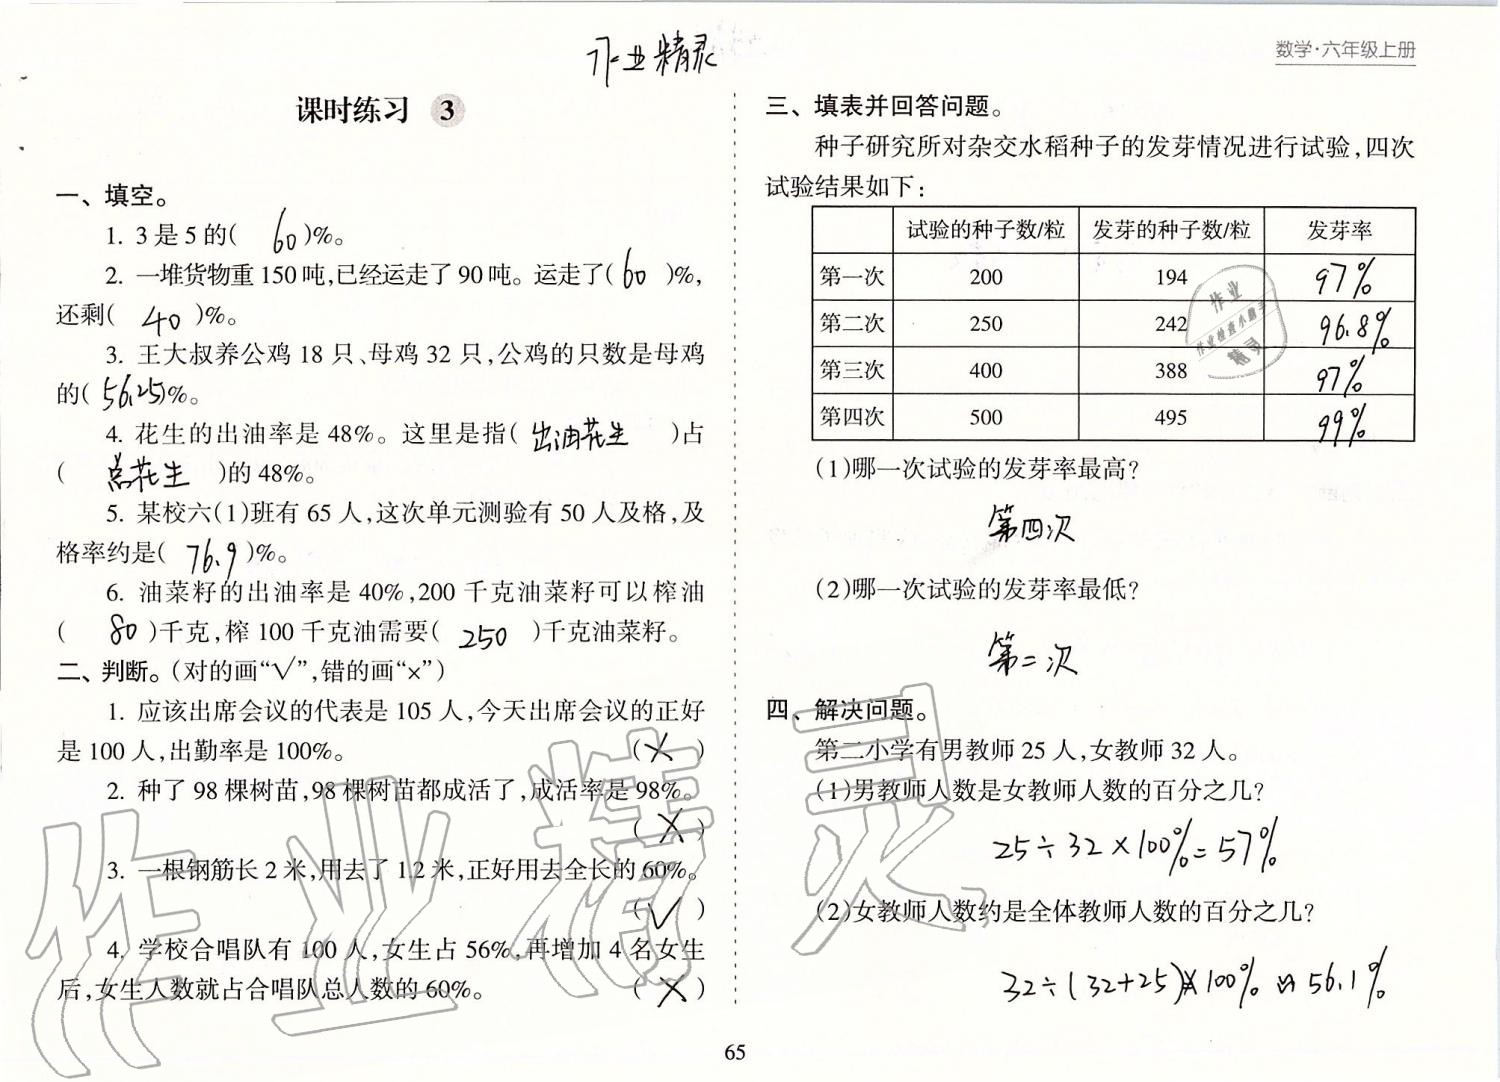 作业精灵
数学·六年级上册
课时练习 3
一、填空。
1. 3是5的( 60 )%。
2. 一堆货物重150吨,已经运走了90吨。运走了( 60 )%,
还剩( 40 )%。
3. 王大叔养公鸡18只、母鸡32只,公鸡的只数是母鸡
的( 56.25 )%。
4. 花生的出油率是48%。这里是指( 出油花生 )占
( 总花生 )的48%。
5. 某校六(1)班有65人,这次单元测验有50人及格,及
格率约是( 76.9 )%。
6. 油菜籽的出油率是40%,200千克油菜籽可以榨油
( 80 )千克,榨100千克油需要( 250 )千克油菜籽。
二、判断。(对的画“√”,错的画“×”)
1. 应该出席会议的代表是105人,今天出席会议的正好
是100人,出勤率是100%。 ( × )
2. 种了98棵树苗,98棵树苗都成活了,成活率是98%。
( × )
3. 一根钢筋长2米,用去了1.2米,正好用去全长的60%。
( √ )
4. 学校合唱队有100人,女生占56%,再增加4名女生
后,女生人数就占合唱队总人数的60%。 ( × )
三、填表并回答问题。
种子研究所对杂交水稻种子的发芽情况进行试验,四次
试验结果如下:
试验的种子数/粒 发芽的种子数/粒 发芽率
第一次 200 194 97%
第二次 250 242 96.8%
第三次 400 388 97%
第四次 500 495 99%
作业
作业检查小助手
精灵
(1)哪一次试验的发芽率最高?
第四次
(2)哪一次试验的发芽率最低?
第二次
四、解决问题。
第二小学有男教师25人,女教师32人。
(1)男教师人数是女教师人数的百分之几?
25÷32×100%=57%
(2)女教师人数约是全体教师人数的百分之几?
32÷(32+25)×100%≈56.1%
作业精灵
65